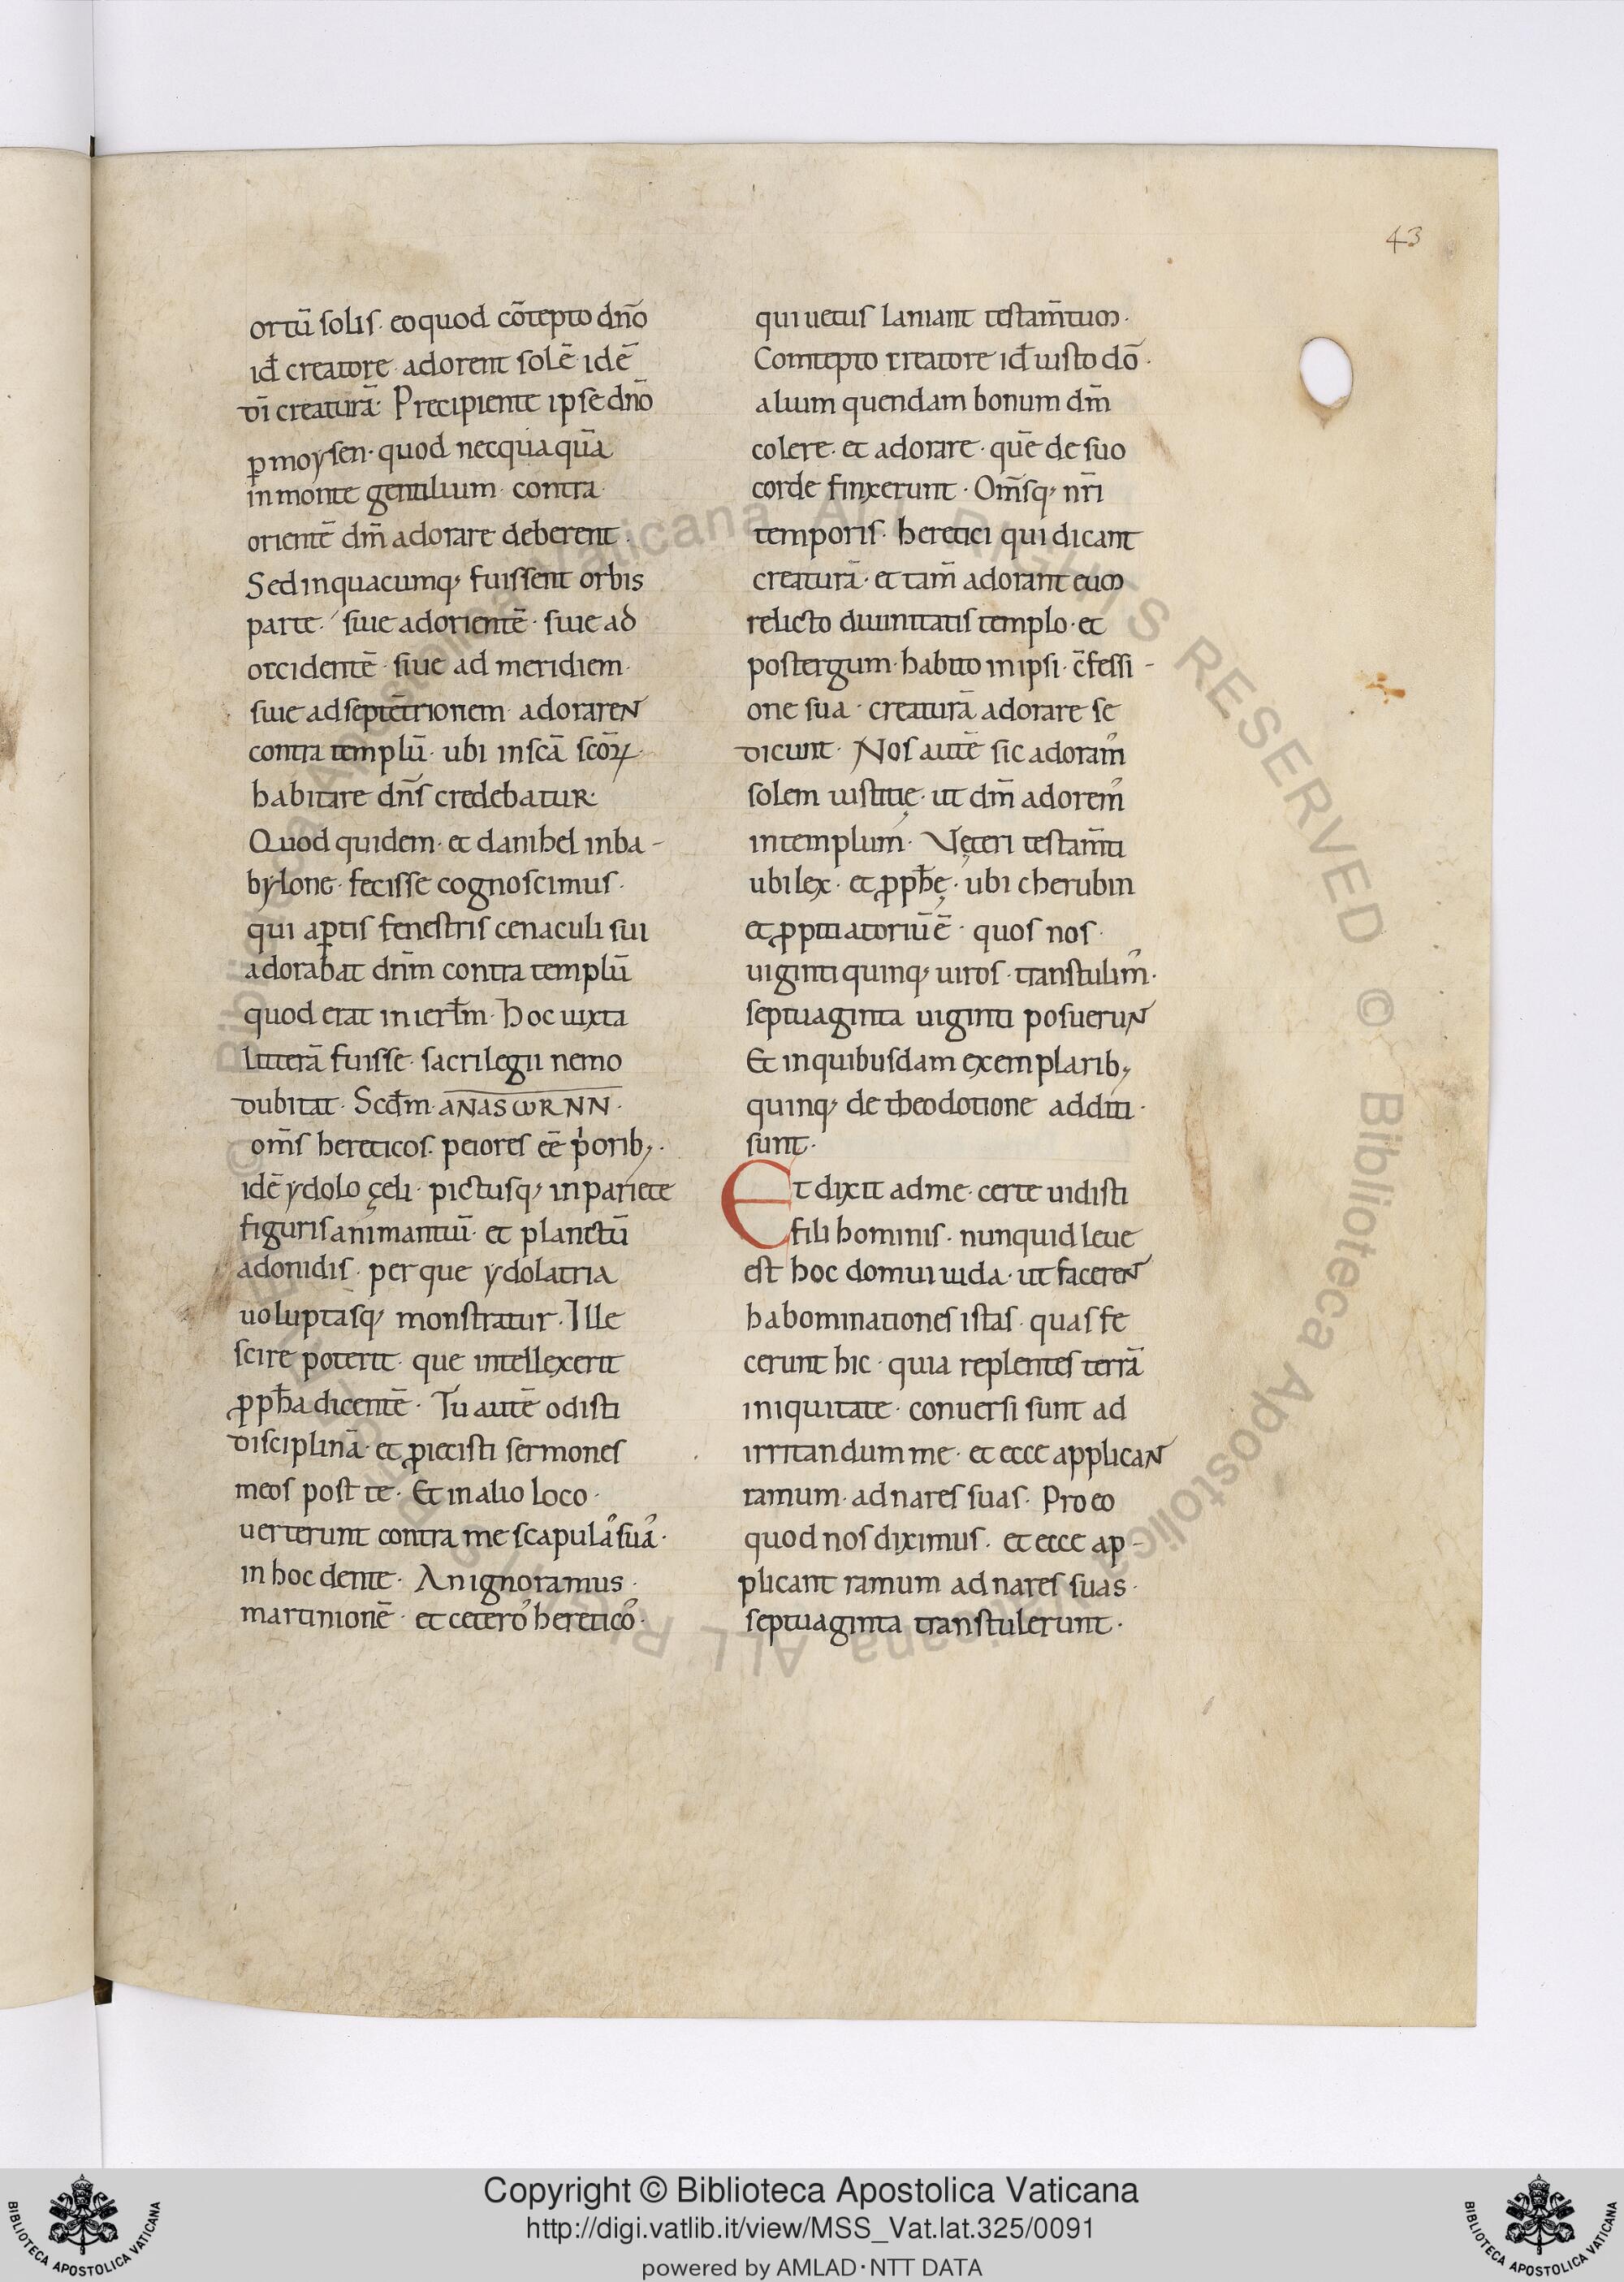 43
ortū solis. eo quod cōtepto dn̄o
id̄ creatore adorent solē idē
dī creaturā. Precipiente ipse dn̄o
ꝑ moysen. quod necquaquā
in monte gentilium. contra
orientē dm̄ adorare deberent.
Sed in quacumq; fuissent orbis
parte. siue ad orientē. siue ad
occidentē. siue ad meridiem.
siue ad septētrionem adoraren
contra templū. ubi in scā scōꝝ.
habitare dn̄s credebatur.
Quod quidem. et danihel in ba-
bylone. fecisse cognoscimus.
qui aꝑtis fenestris cenaculi sui
adorabat dn̄m contra templū
quod erat in ierl̄m. Hoc iuxta
litterā fuisse. sacrilegii nemo
dubitat. Scd̄m. ANASωRNN.
om̄s hereticos. peiores eē p'orib;.
idē ydolo çeli. pictusq; in pariete
figuris animantiū. et planctū
adonidis. per que ydolatria
uoluptasq; monstratur. Ille
scire poterit. que intellexerit
ꝓph̄a dicentē. Tu autē odisti
disciplinā. et ꝓiecisti sermones
meos post te. Et in alio loco.
uerterunt contra me scapulas suas.
in hoc dente. An ignoramus.
martinionē. et ceteros hereticos.
qui uetus laniant testam̄tum.
Comtepto creatore id̄ iusto dō.
alium quendam bonum dm̄
colere. et adorare. quē de suo
corde finxerunt. Om̄sq; nr̄i
temporis. heretici qui dicant
creaturā. et tam̄ adorant eum
relicto diuinitatis templo. et
postergum. habito in ipsi. c̄fessi-
one sua. creaturā adorare se
dicunt. Nos autē sic adoram᾿
solem iustitię. ut dm̄ adorem᾿
in templum. Vęteri testam̄ti
ubi lex. et ꝓph̄ę. ubi cherubin
et ꝓpitiatoriū ē. quos nos.
uiginti quinq; uiros. transtulim᾿.
septuaginta uiginti posuerun
Et in quibusdam exemplarib;
quinq; de theodotione additi.
sunt.
Et dixit ad me. certe uidisti
fili hominis. nunquid leue
est hoc domui iuda. ut faceren
habominationes istas. quas fe
cerunt hic. quia replentes terrā
iniquitate. conuersi sunt ad
irritandum me. et ecce applican
ramum. ad nares suas. Pro eo
quod nos diximus. et ecce ap-
plicant ramum ad nares suas.
septuaginta transtulerunt.
Copyright © Biblioteca Apostolica Vaticana
http://digi.vatlib.it/view/MSS_Vat.lat.325/0091
powered by AMLAD·NTT DATA
BIBLIOTECA APOSTOLICA VATICANA
BIBLIOTECA APOSTOLICA VATICANA